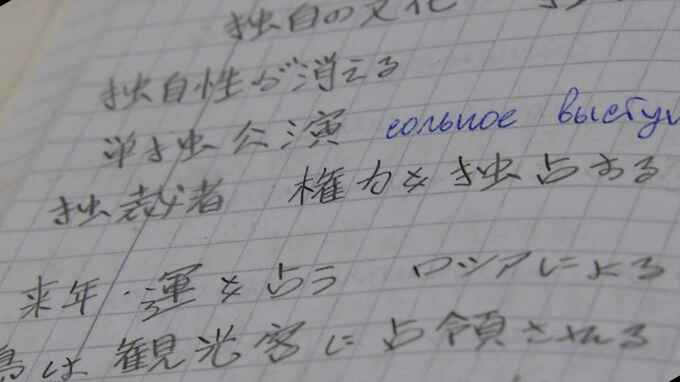 独自の文化
独自性が消える
単独公演 сольное высту
独裁者 権力を独占する
来年の運を占う ロシアによる
島は観光客に占領される